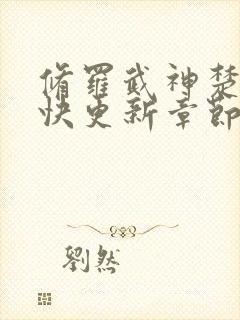 脩羅武神楚
快更新章節
劉然